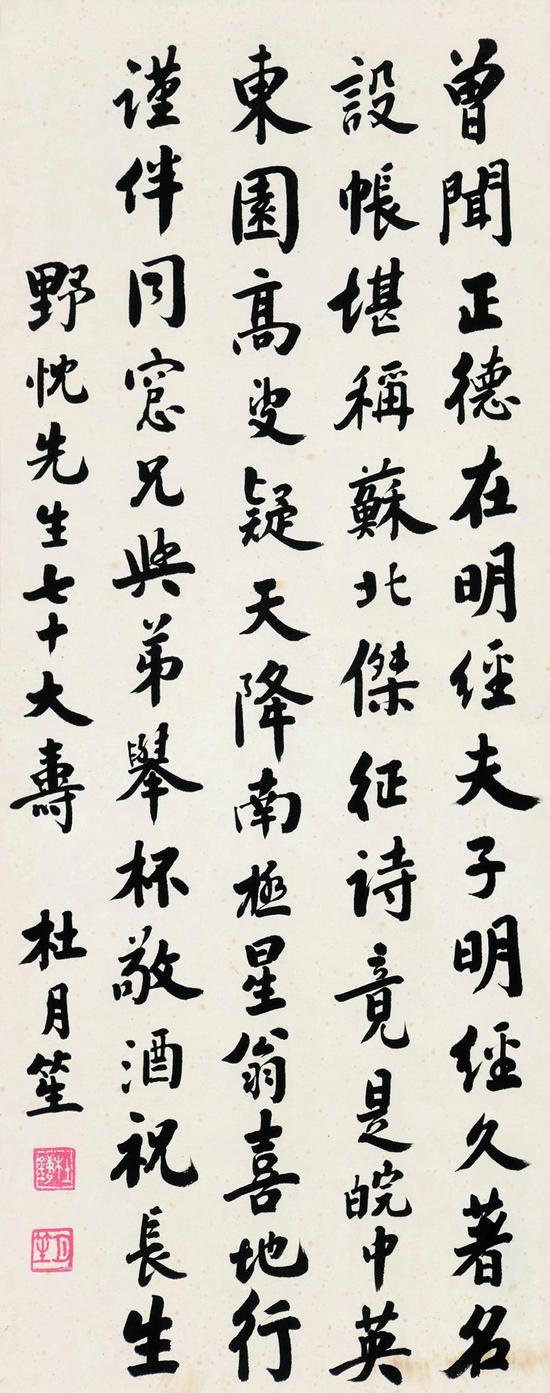 曾聞正德在明經夫子明經久著名
設帳堪稱蘇北傑征诗竟是皖中英
東園高叟疑天降南極星翁喜地行
谨伴同窓兄與弟舉杯敬酒祝長生
野忱先生七十大壽 杜月笙
杜鏞
月笙